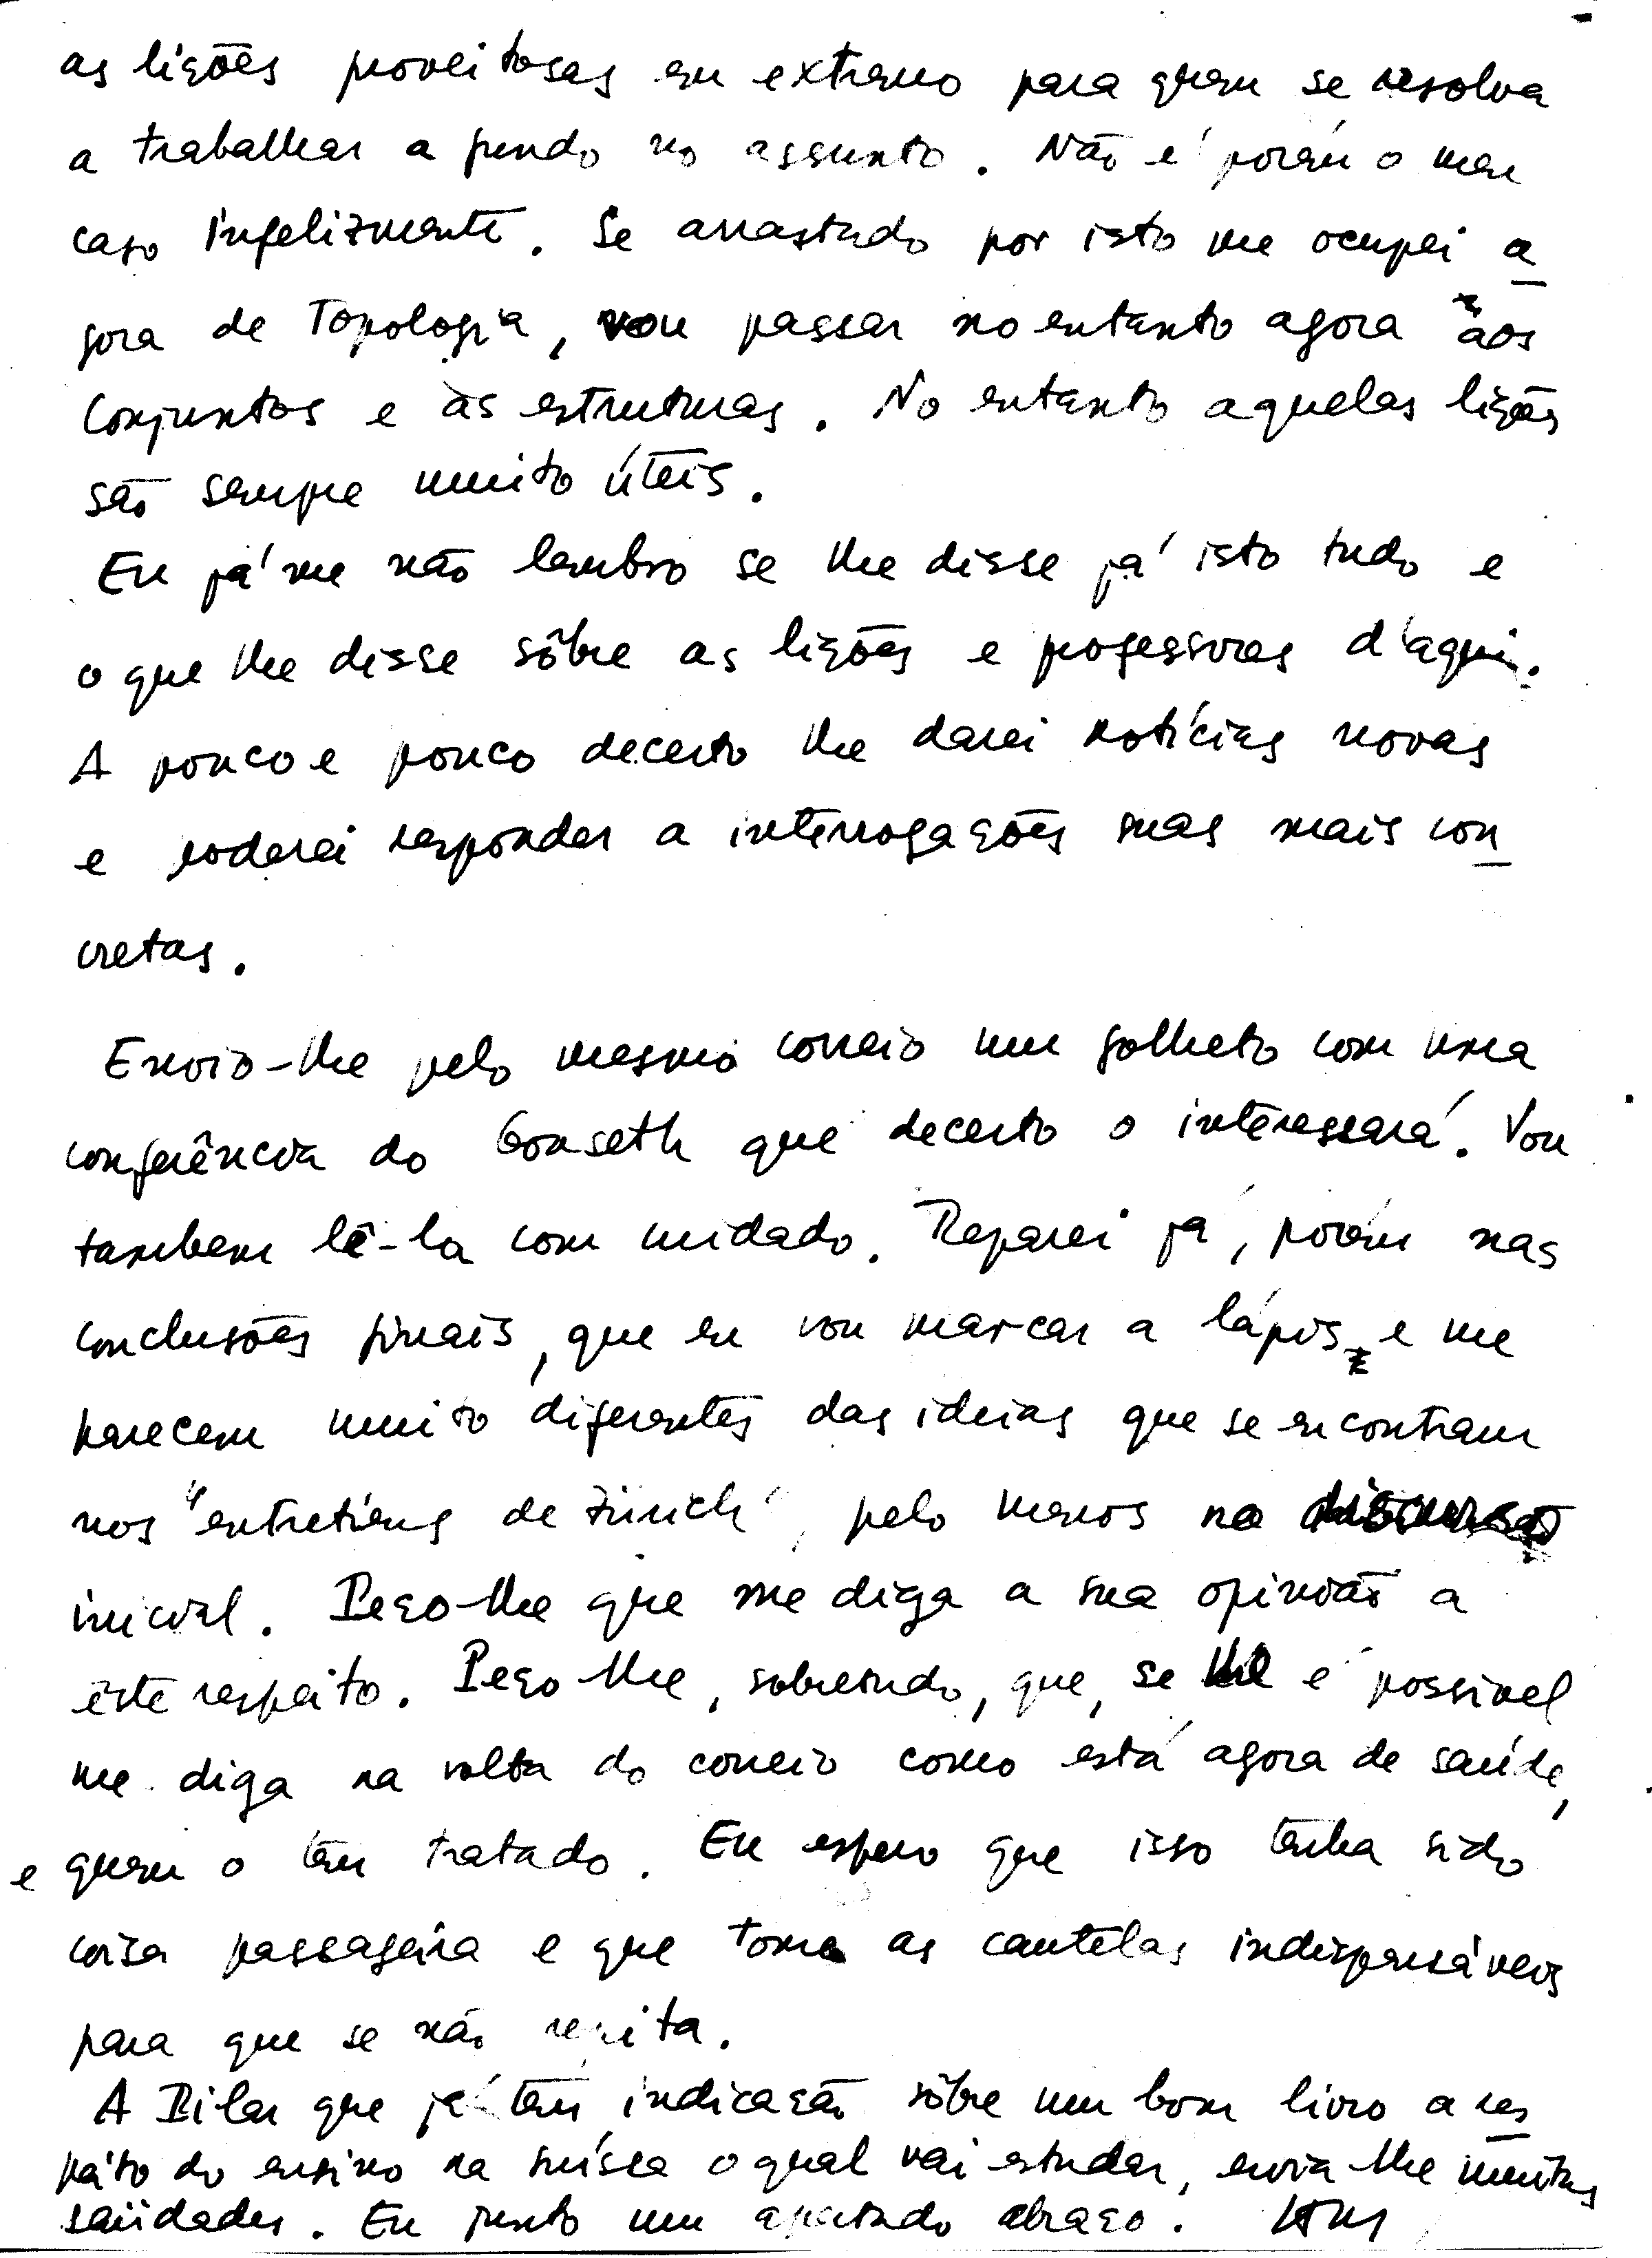 as lições proveitosas em extremo para quem se resolva
a trabalhar a fundo no assunto. Não é porém o meu
caso infelizmente. Se arrastado por isto me ocupei a
gora de Topologia, vou passar no entanto agora aos
conjuntos e às estruturas. No entanto aquelas lições
são sempre muito úteis.
Eu já me não lembro se lhe disse já isto tudo e
o que lhe disse sôbre as lições e professores d'aqui.
A pouco e pouco decerto lhe darei notícias novas
e poderei responder a interrogações suas mais con
cretas.
Envio-lhe pelo mesmo correio um folheto com uma
conferência do Gonseth que decerto o interessará. Vou
tambem lê-la com cuidado. Reparei já, porém nas
conclusões finais, que eu vou marcar a lápis e me
parecem muito diferentes das ideias que se encontram
nos "entretiens de Zürich", pelo menos no discurso
inicial. Peço-lhe que me diga a sua opinião a
êste respeito. Peço-lhe, sobretudo, que, se lhe é possivel
me diga na volta do correio como está agora de saúde,
e quem o tem tratado. Eu espero que isso tenha sido
coisa passageira e que tome as cautelas indispensáveis
para que se não repita.
A Pilar que já tem indicação sôbre um bom livro a res
peito do ensino na suíssa o qual vai estudar, envia-lhe muitas
saüdades. Eu junto um apertado abraço.